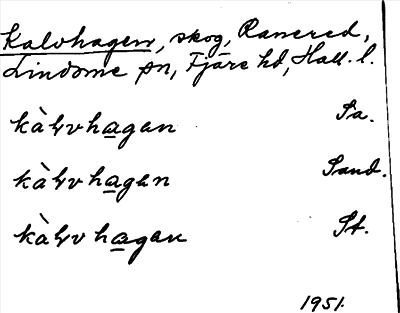 Kalvhagen, skog, Ranered,
Lindome sn, Fjäre hd, Hall. l.
kàⱡvhagan Sa.
kàⱡvhagen Sand.
kàⱡvhagen St.
1951.